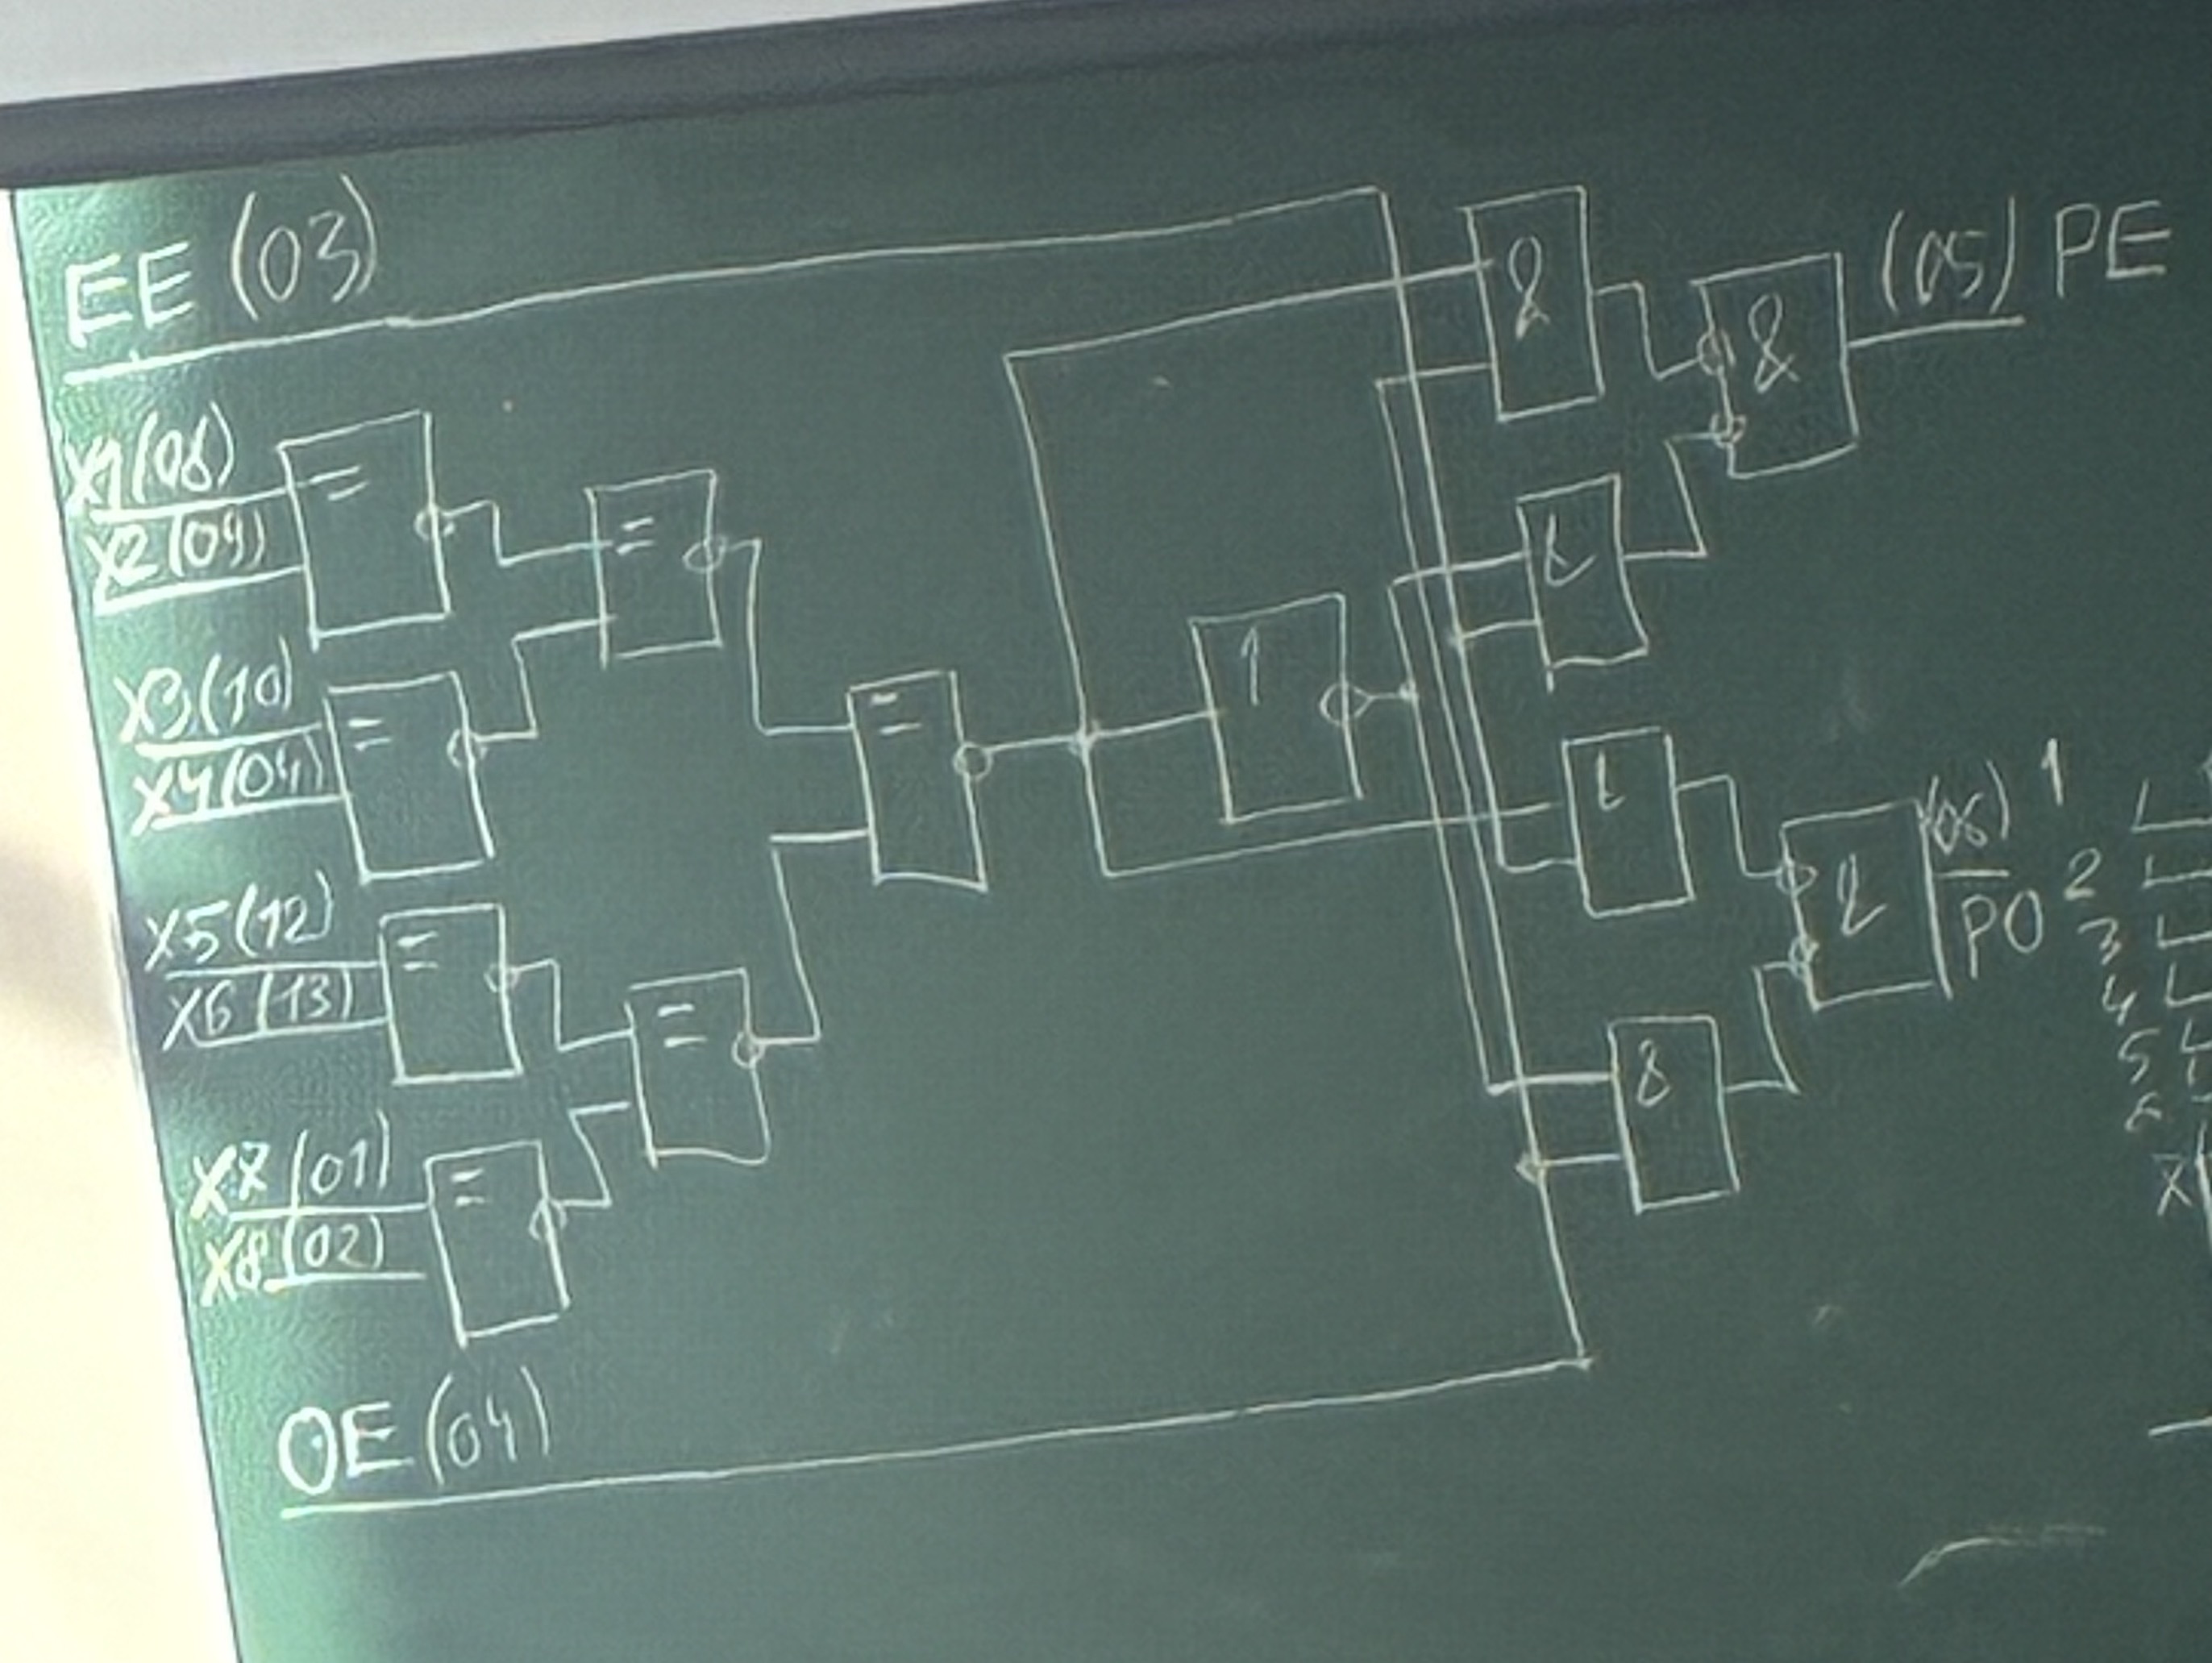 EE (03)
X1 (08)
X2 (09)
X3 (10)
X4 (04)
X5 (12)
X6 (13)
X7 (01)
X8 (02)
OE (04)
=
=
=
=
=
=
=
1
&
&
&
&
&
&
(05) PE
(06)
PO
1
2
3
4
5
6
X